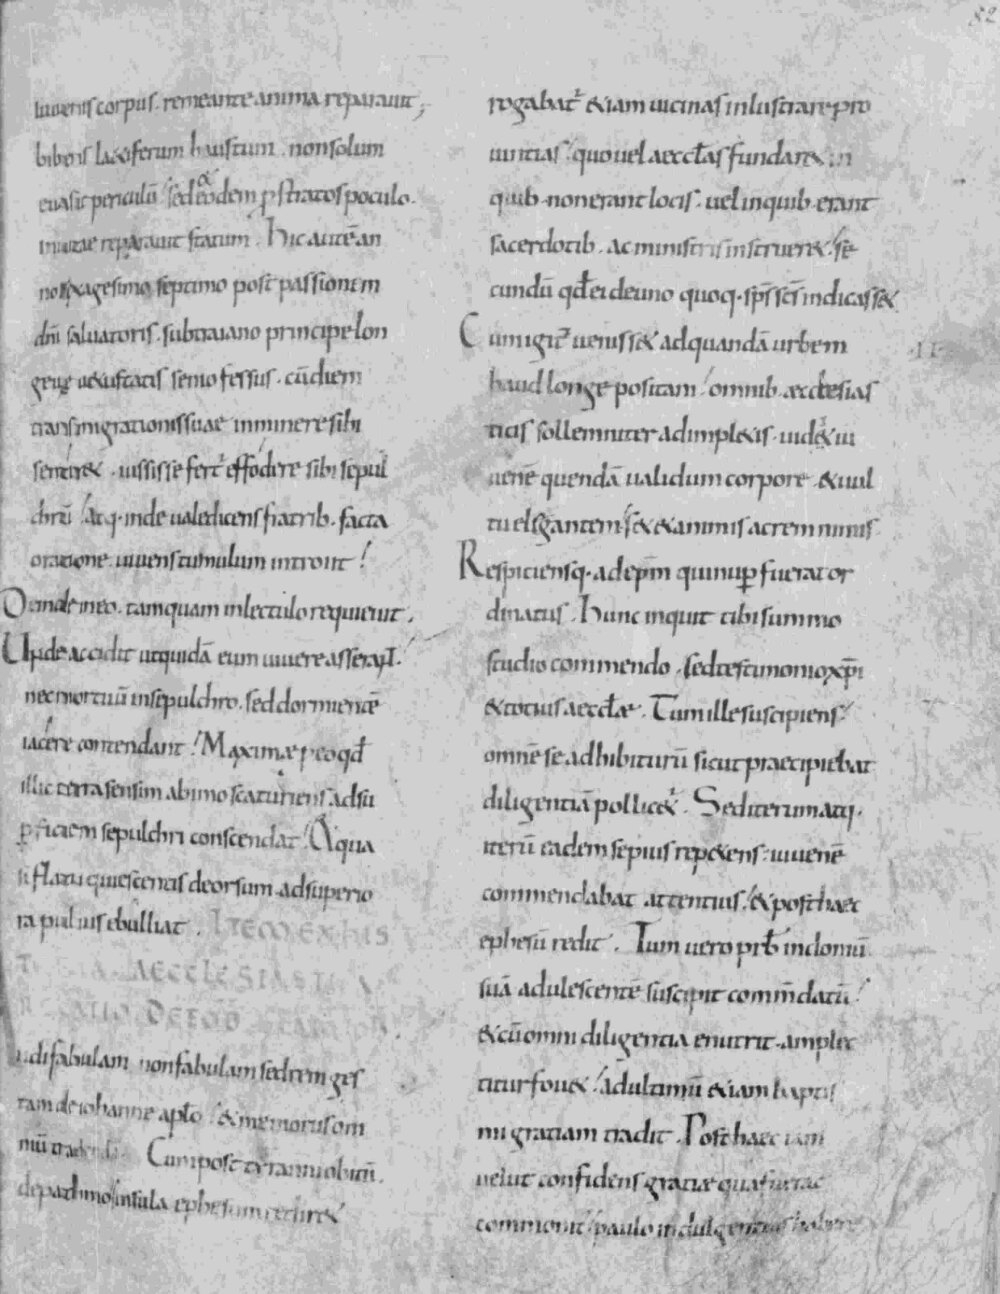 82
iuuenis corpus. remeante anima reparauit;
bibens laetiferum haustum. non solum
euasit periculū sed & eodem pstratos poculo.
in uitae reparauit statum. Hic autē an
no sexagesimo septimo post passionem
dn̄i saluatoris. sub traiano principe lon
geue uetustatis senio fessus. cū diem
transmigrationis suae inminere sibi
sentiret. iussisse fert effodere sibi sepul
chrū. atq. inde ualedicens fratrib. facta
oratione. uiuens tumulum introiit.
Deinde in eo. tamquam in lectulo requieuit.
Unde accidit ut quidā eum uiuere asserant.
nec mortuū in sepulchro. sed dormientē
iacere contendant. Maximae p eo qđ
illic terra sensim ab imo scaturiens ad su
pficiem sepulchri conscendat. Aqua
si flatu quiescentis deorsum. ad superio
ra puluis ebulliat. ITEM EX HIS
AECCLESIASTICA
DE EOD
Audi fabulam non fabulam sed rem ges
tam de iohanne apto. & memoriis om
niū Cum post tyranni obitū.
de pathmo insula ephesum rediret
rogabat &iam uicinas inlustrare pro
uintias. quo uel aecctas fundaret in
quib. non erant locis. uel in quib. erant
sacerdotib. ac ministris instrueret. se
cundū qđ ei de uno quoq. sps scs indicasset
Cum igit uenisset ad quandā urbem
haud longe positam. omnib. aecclesias
ticis sollemniter adimpletis. uidet iu
uenē quendā ualidum corpore. & uul
tu elegantem. sed & animis acrem nimis
Respiciensq. ad epm qui nup fuerat or
dinatus. Hunc inquit tibi summo
studio commendo. sed testimonio xpi
& totius aecctae. Tum ille suscipiens
omnē se adhibiturū sicut praecipiebat
diligentiā pollicet. Sed iterum atq.
iterū eadem sepius repetens. iuuenē
commendabat attentius. & post haec
ephesū redit. Tum uero prb in domū
suā adulescentē suscipit commdatū.
& cū omni diligentia enutrit. amplec
titur fouet. ad ultimū etiam baptis
mi gratiam tradit. Post haec iam
uelut confidens gratiae qua
paulo indulgentius habere